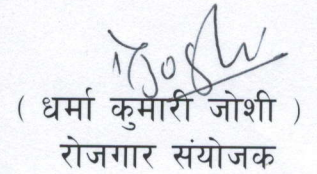 ( धर्मा कुमारी जोशी )
रोजगार संयोजक